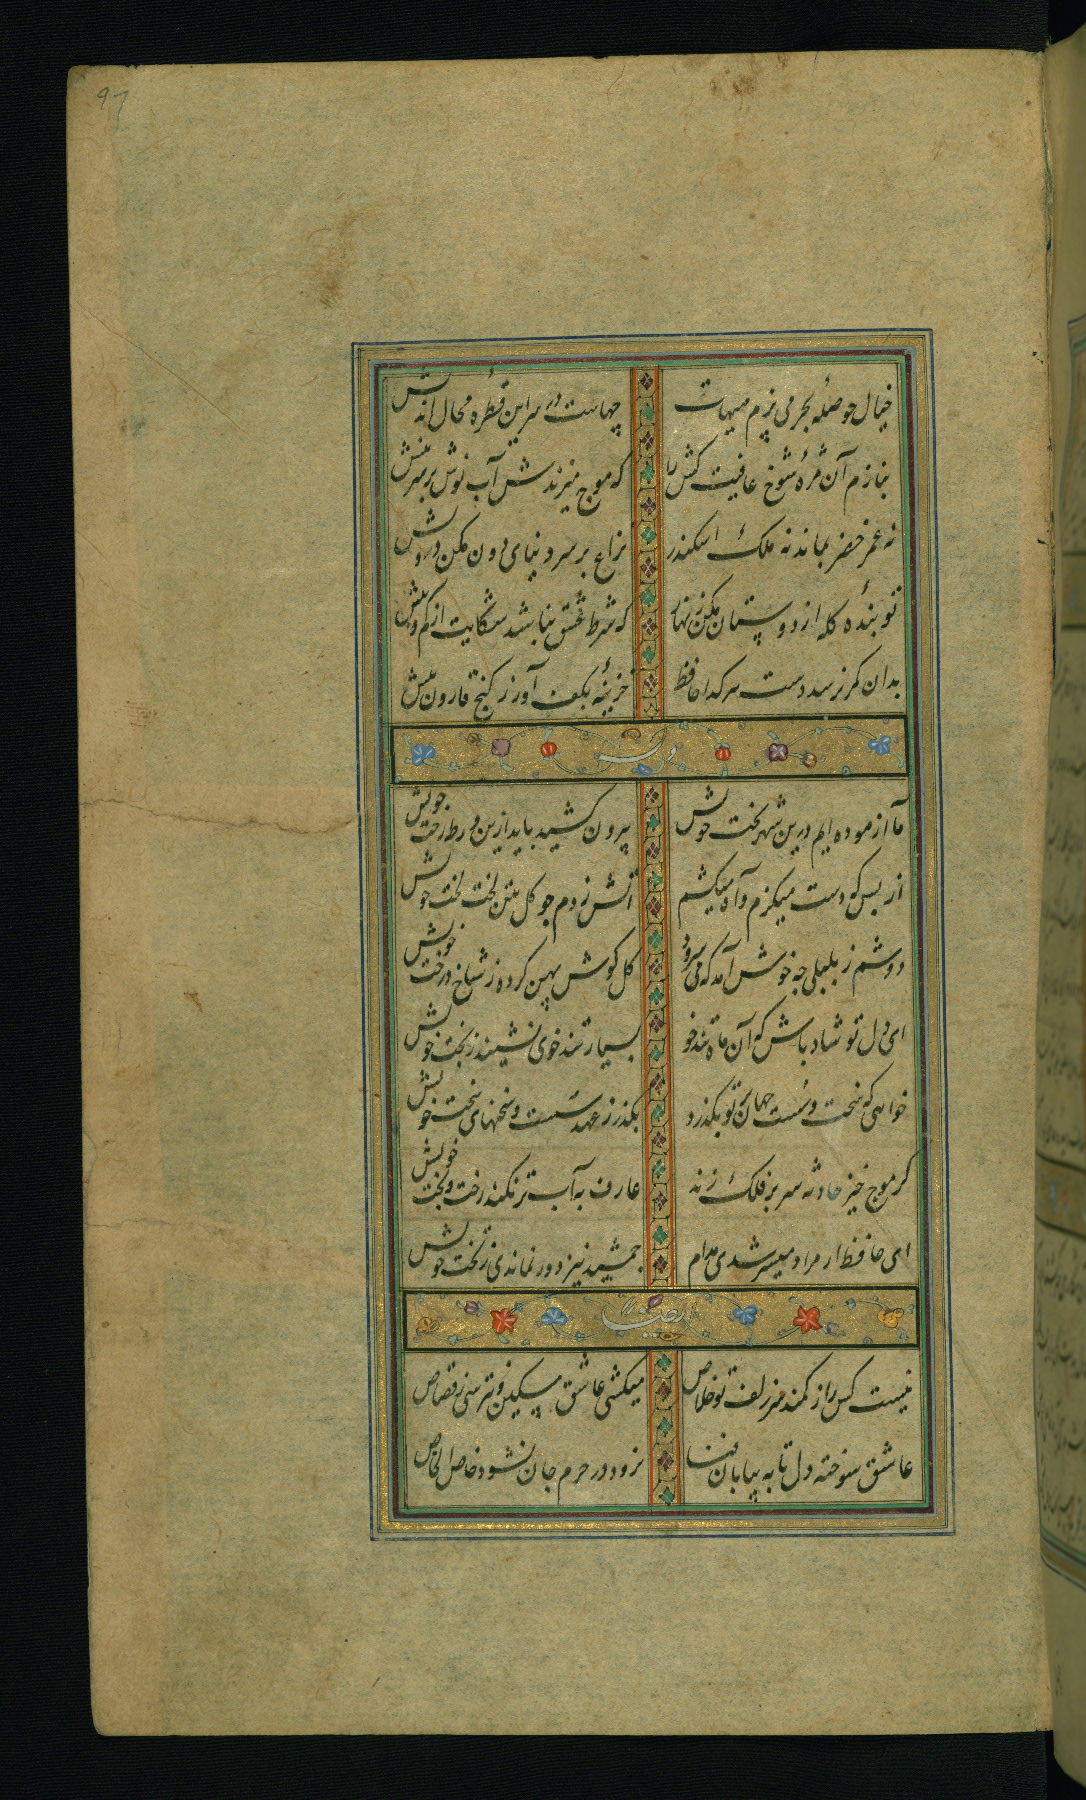 97
خیال حوصلهٔ بحر می پزم هیهات چهاست در سر این قطره محال اندیش
بنازم آن مژهٔ شوخ عافیت کش را که موج میزندش آب نوش بر سر نیش
نه عمر خضر بماند نه ملک اسکندر نزاع بر سر دنیای دون مکن درویش
تو بندهٔ کله از دوستان مکن زنهار که شرط عشق نباشد شکایت از کم و بیش
بدان کمر نرسد دست هر کدا حافظ خزینهٔ بکف آور ز کنج قارون بیش
ما آزموده ایم درین شهر بخت خویش بیرون کشید باید ازین ورطه رخت خویش
از بس که دست میکزم و آه میکشم آتش زدم چو کل بتن لخت لخت خویش
دوشم ز بلبلی چه خوش آمد که می سرود کل کوش پهن کرده ز شاخ درخت خویش
ای دل تو شاد باش که آن ماه تندخو بسیار تندخوی نشیند ز بخت خویش
خواهی که سخت و سست جهان بر تو بکذرد بکذر ز عهد سست و سخنهای سخت خویش
کر موج خیز حادثه سر بر فلک زند عارف به آب تر نکند رخت و بخت خویش
ای حافظ ار مراد میسر شدی مدام جمشید نیز دور نماندی ز تخت خویش
نیست کس را ز کمند سر زلف تو خلاص میکشی عاشق مسکین و نترسی ز قصاص
عاشق سوخته دل تا به بیابان فنا نرود در حرم جان نشود خاص الخاص